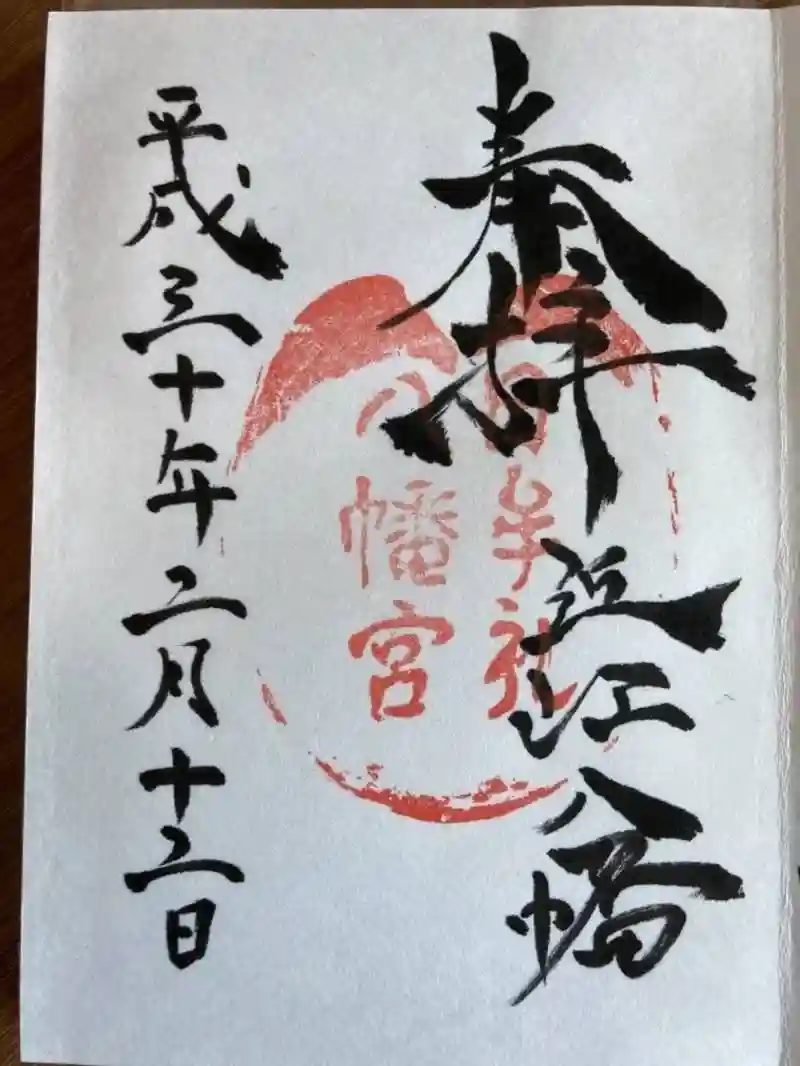 奉拝
近江八幡
日牟禮
八幡宮
平成三十年二月十二日